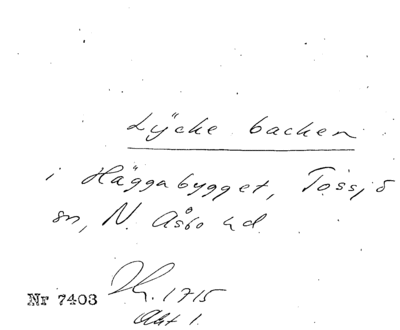 Lÿcke backen
i Häggabygget, Tossjö
sn, N. Åsbo hd.
1715
Nr 7403
Akt 1.